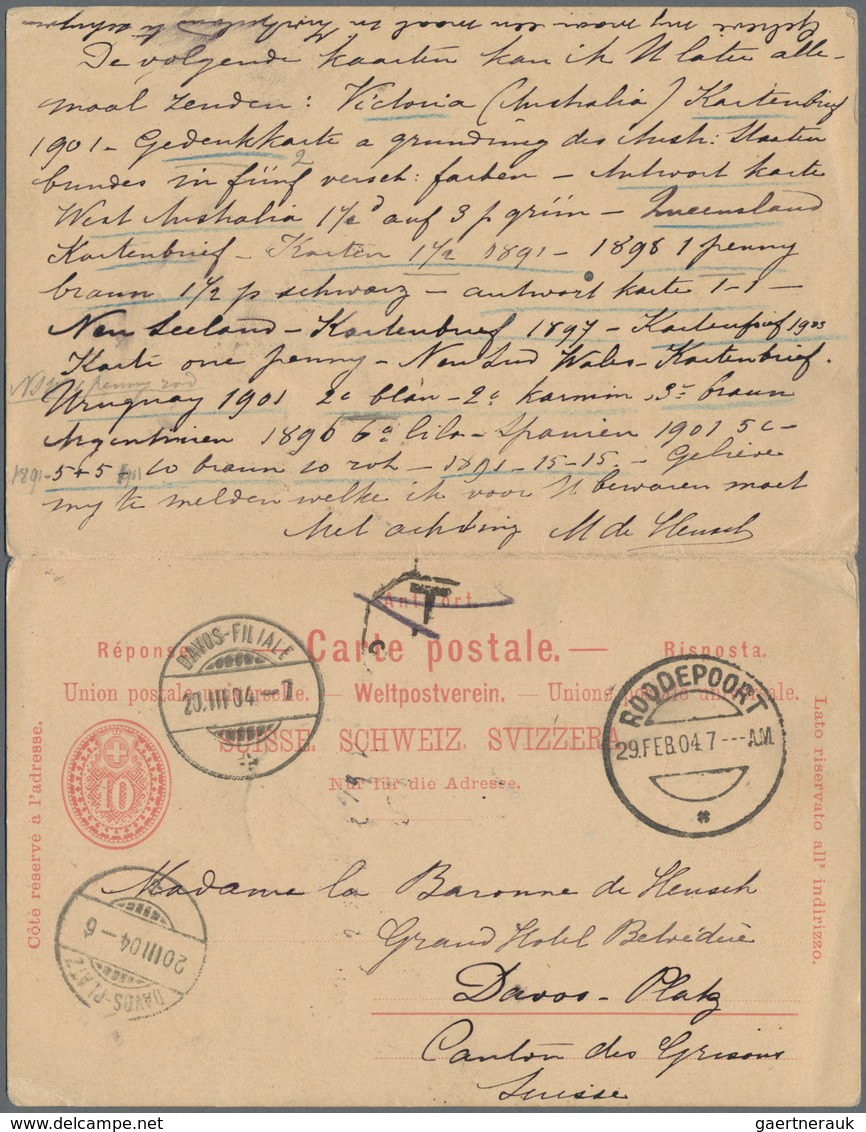 Gelieve my maar een maal in
De volgende kaarten kan ik U later alle-
maal zenden: Victoria (Australia) Kartenbrief
1901 - Gedenkkarte a grundung des Austr: Staaten
bundes in fünf versch: farben - Antwort karte
2
West Australia 1½d auf 3 p grün - Queensland
Kartenbrief - Karten 1½ 1891 - 1898 1 penny
braun 1½ p schwarz - antwort karte 1-1 -
Neu Seeland - Kartenbrief 1897 - Kartenbrief 1903
Karte one penny - Neu Sud Wales - Kartenbrief.
penny rod
Uruguay 1901 2c blau - 2c karmin, 3c braun
Argentinien 1896 6c lila - Spanien 1901 5c -
1891 - 5+5 - 1901 10 braun 10 rot - 1891 - 15-15 - Gelieve
my te melden welke ik voor U bewaren moet
Met achting M de Heusch
T
Antwort.
Réponse. — Carte postale. — Risposta.
Union postale universelle. — Weltpostverein. — Unione postale universale.
SUISSE. SCHWEIZ. SVIZZERA.
Nur für die Adresse.
Côté réservé à l'adresse.
Lato riservato all' indirizzo.
10
DAVOS-FILIALE
20.III 04 - 7
RODDEPOORT
29.FEB.04.7---AM
DAVOS-PLATZ
20 III 04 - 6
Madame la Baronne de Heusch
Grand Hotel Belvédère
Davos - Platz
Canton des Grisons
Suisse
gaertnerauk